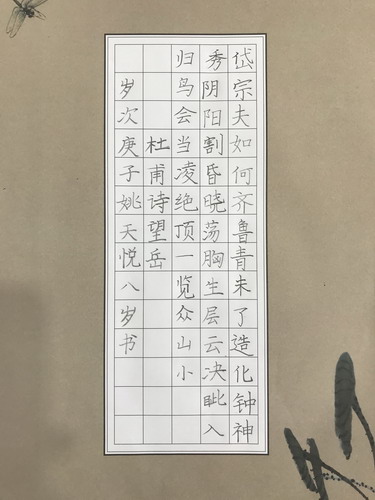 岱宗夫如何齐鲁青未了造化钟神
秀阴阳割昏晓荡胸生层云决眦入
归鸟会当凌绝顶一览众山小
杜甫诗望岳
岁次庚子姚天悦八岁书